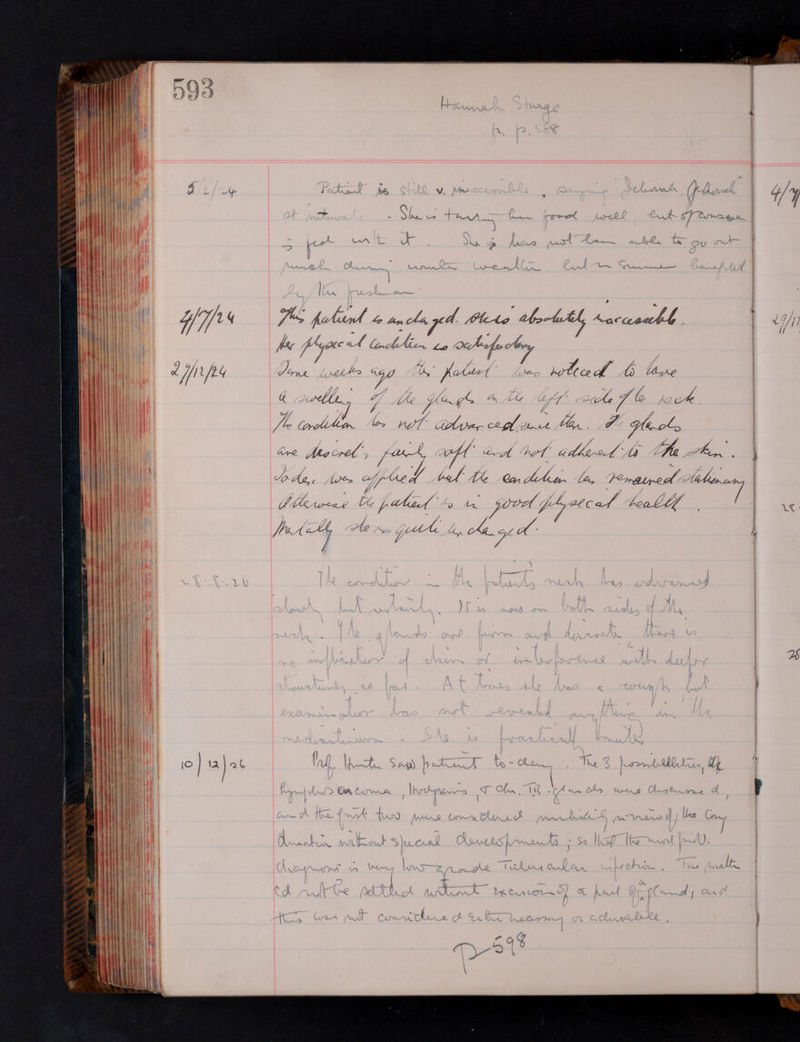 593
Hannah Sturge
fr. p. 568
5/2/24 Patient is still v. inaccessible, saying "Deborah, Deborah"
at intervals. She is taking her food well but
is fed with it. She has not been able to go out
much during winter weather but in Summer benefited
by the fresh air.
4/7/24 This patient is unchanged. She is absolutely inaccessible.
Her physical condition is satisfactory
29/12/24 Some weeks ago this patient was noticed to have
a swelling of the glands on the left side of the neck.
The condition has not advanced since then. The glands
are discrete, fairly soft and not adherent to the skin.
Iodex was applied but the condition has remained stationary
Otherwise the patient is in good physical health.
Mentally she is quite unchanged.
28.8.26 The condition in the patient's neck has advanced
slowly but certainly. It is now on both sides of the
neck. The glands are firm and discrete there is
no implication of skin or interference with deeper
structures so far. At times she has a cough but
examination has not revealed anything in the
mediastinum. She is practically mute.
10/12/26 Prof. Hunter saw patient to-day. The 3 possibilities, of
Lymphosarcoma, Hodgkin's, & Chr. TB. glands were discussed,
and the first two were considered unlikely in view of the long
duration without special developments; so that the most prob.
diagnosis is very low grade Tubercular infection. The matter
cd not be settled without excision of a part of a gland, and
this was not considered either necessary or advisable.
p 598
4/7
29/12
28